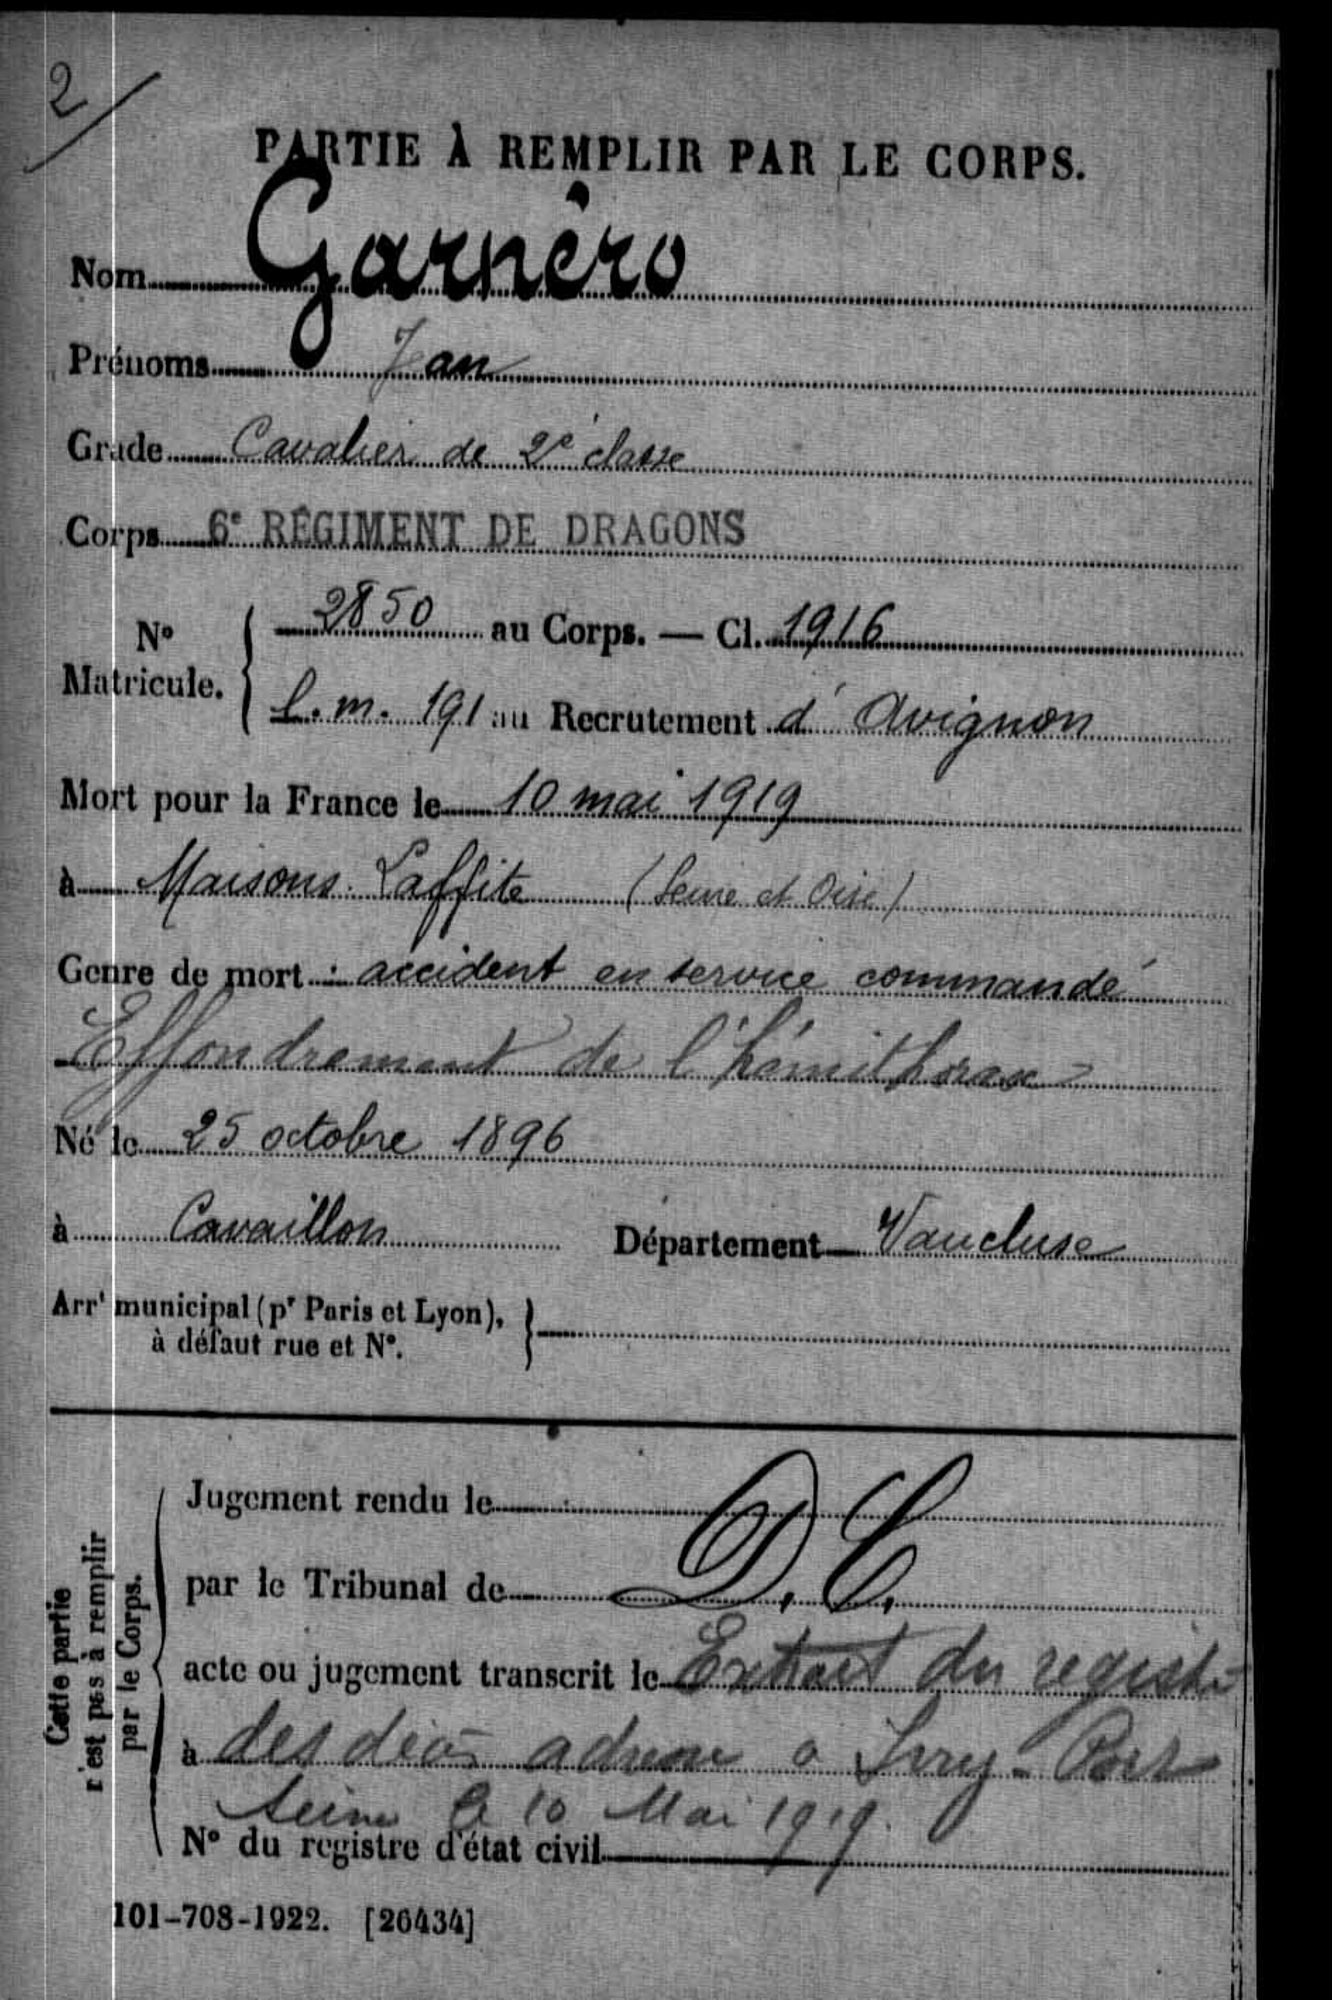 2/
PARTIE À REMPLIR PAR LE CORPS.
Nom Garnéro
Prénoms Jean
Grade Cavalier de 2e classe
Corps 6e RÉGIMENT DE DRAGONS
N° Matricule. { 2850 au Corps. — Cl. 1916
l.m. 191 au Recrutement d'Avignon
Mort pour la France le 10 mai 1919
à Maisons Laffite (Seine et Oise)
Genre de mort : accident en service commandé
Effondrement de l'hémithorax
Né le 25 octobre 1896
à Cavaillon Département Vaucluse
Arrt municipal (pr Paris et Lyon),
à défaut rue et N°.
Cette partie
n'est pas à remplir
par le Corps.
Jugement rendu le
par le Tribunal de D.C.
acte ou jugement transcrit le Extrait du registre
à des décès adressé à Ivry-Port
Seine le 10 Mai 1919.
N° du registre d'état civil
101-708-1922. [26434]